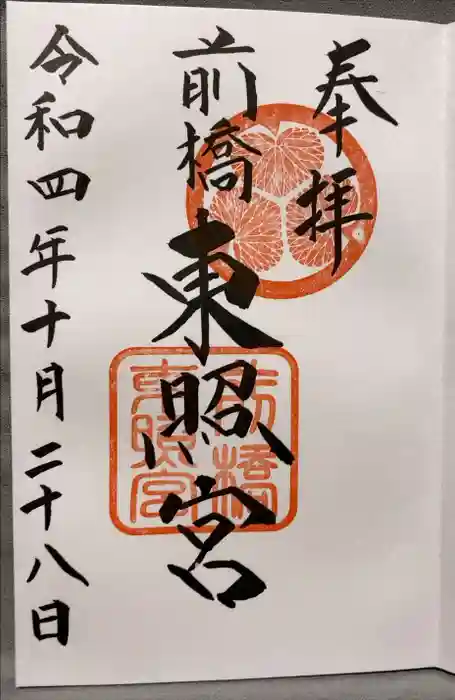 奉拝
前橋東照宮
前橋
東照宮
令和四年十月二十八日